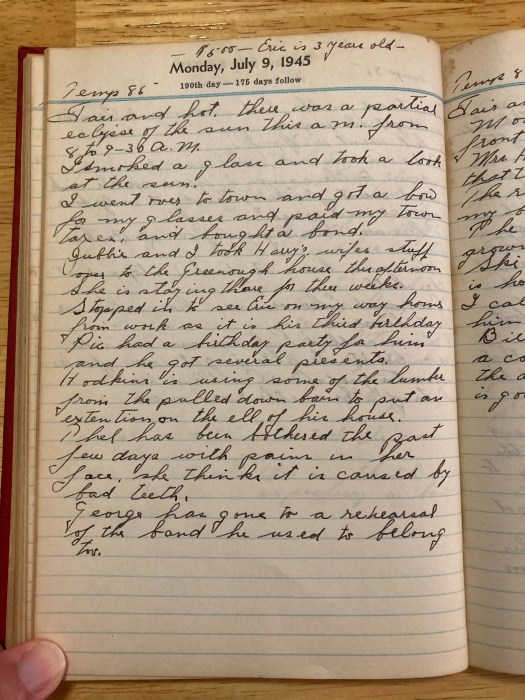 — $5.00 — Eric is 3 years old —
Monday, July 9, 1945
190th day — 175 days follow
Temps 86°
Fair and hot, there was a partial
eclipse of the sun this a m. from
8 to 9-36 A.M.
I smoked a glass and took a look
at the sun.
I went over to town and got a bow
for my glasses and paid my town
taxes, and bought a bond.
and I took wifes stuff
over to the Greenough house this afternoon
she is staying there for three weeks.
Stopped in to see Eric on my way home
from work as it is his third birthday
Pic had a birthday party for him
and he got several presents.
Hodkins is using some of the lumber
from the pulled down barn to put an
extention on the ell of his house.
Phel has been bothered the past
few days with pains in her
face, she thinks it is caused by
bad teeth.
George has gone to a rehearsal
of the band he used to belong
to.
Temps 8
Fair a
M
front
Mrs
that t
The
my
The
grow
Ski
is ho
I cal
him
Bil
a co
the a
is go